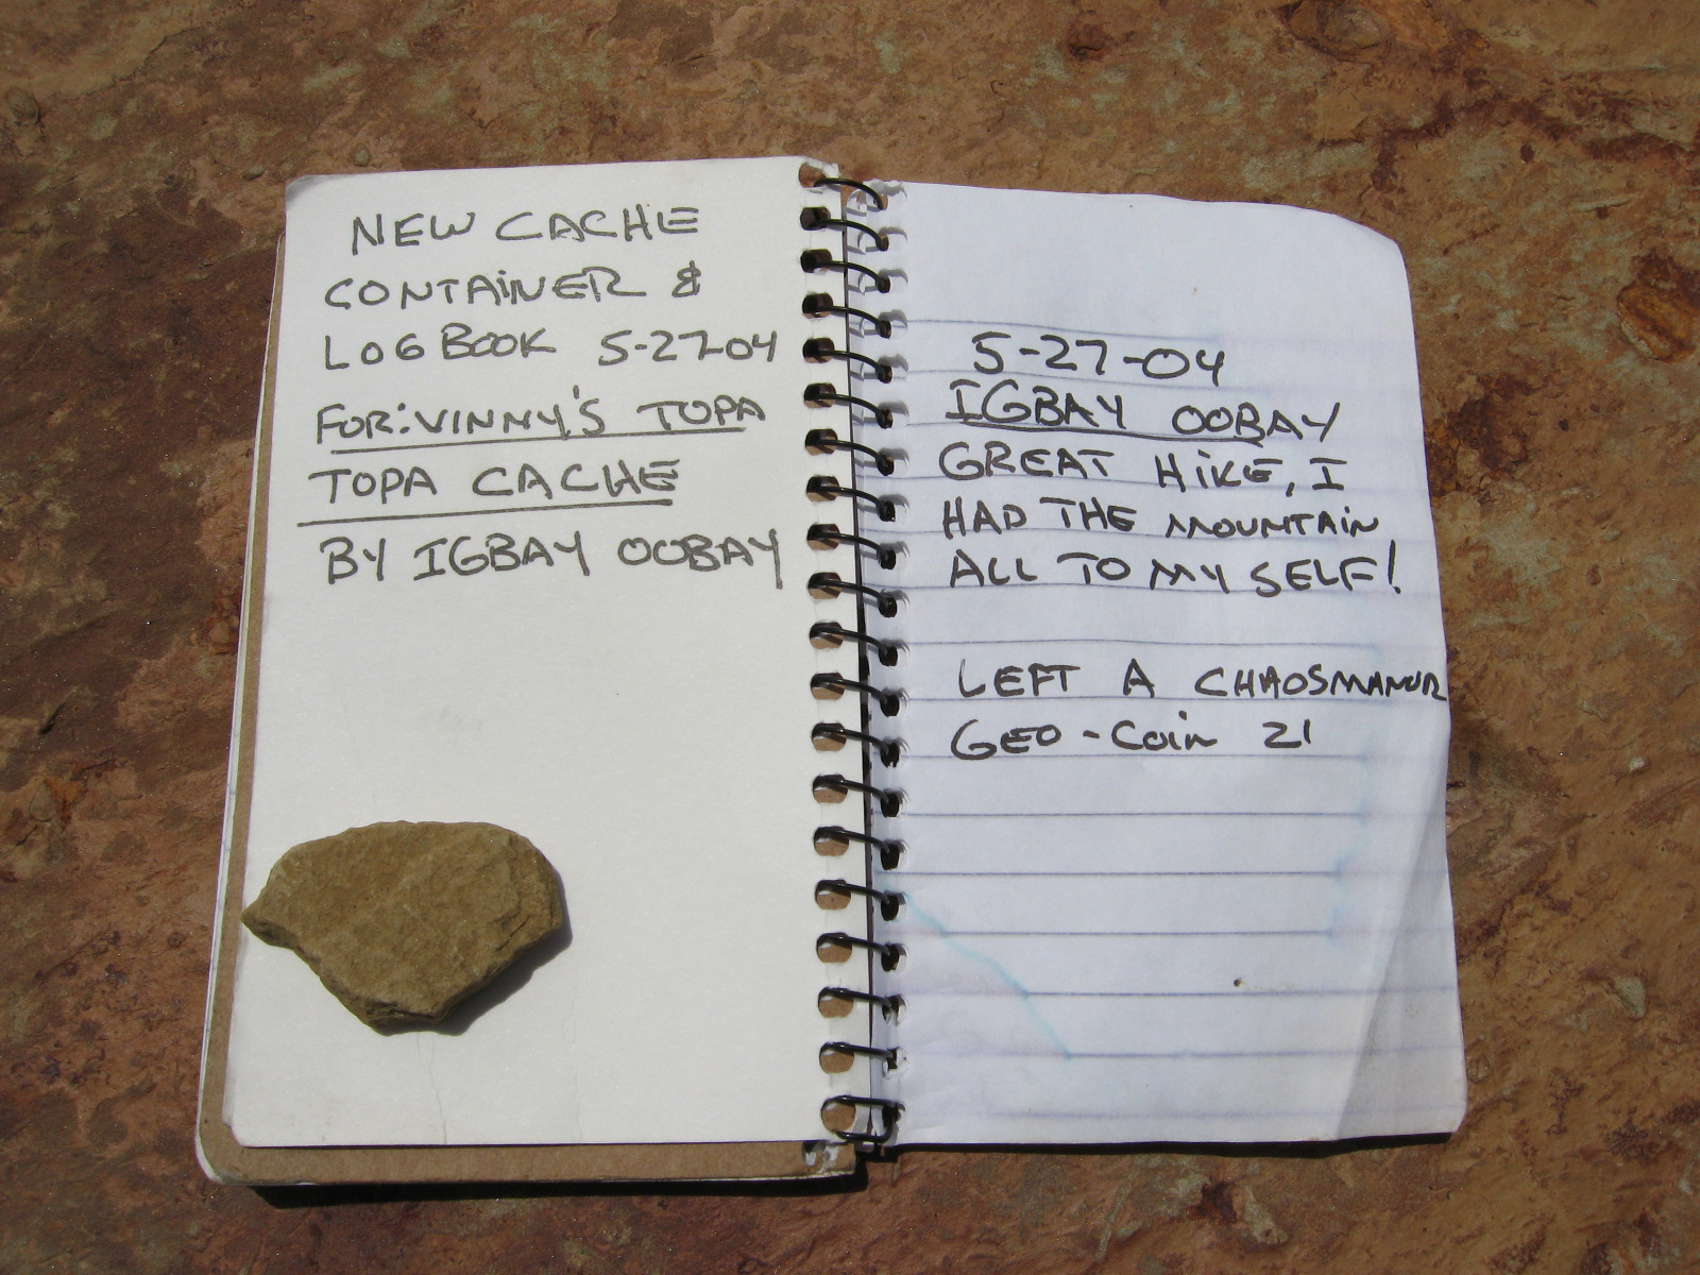 NEW CACHE
CONTAINER &
LOG BOOK 5-27-04
FOR: VINNY'S TOPA
TOPA CACHE
BY IGBAY OOBAY
5-27-04
IGBAY OOBAY
GREAT HIKE, I
HAD THE MOUNTAIN
ALL TO MY SELF!
LEFT A CHAOSMANOR
GEO-COIN 21